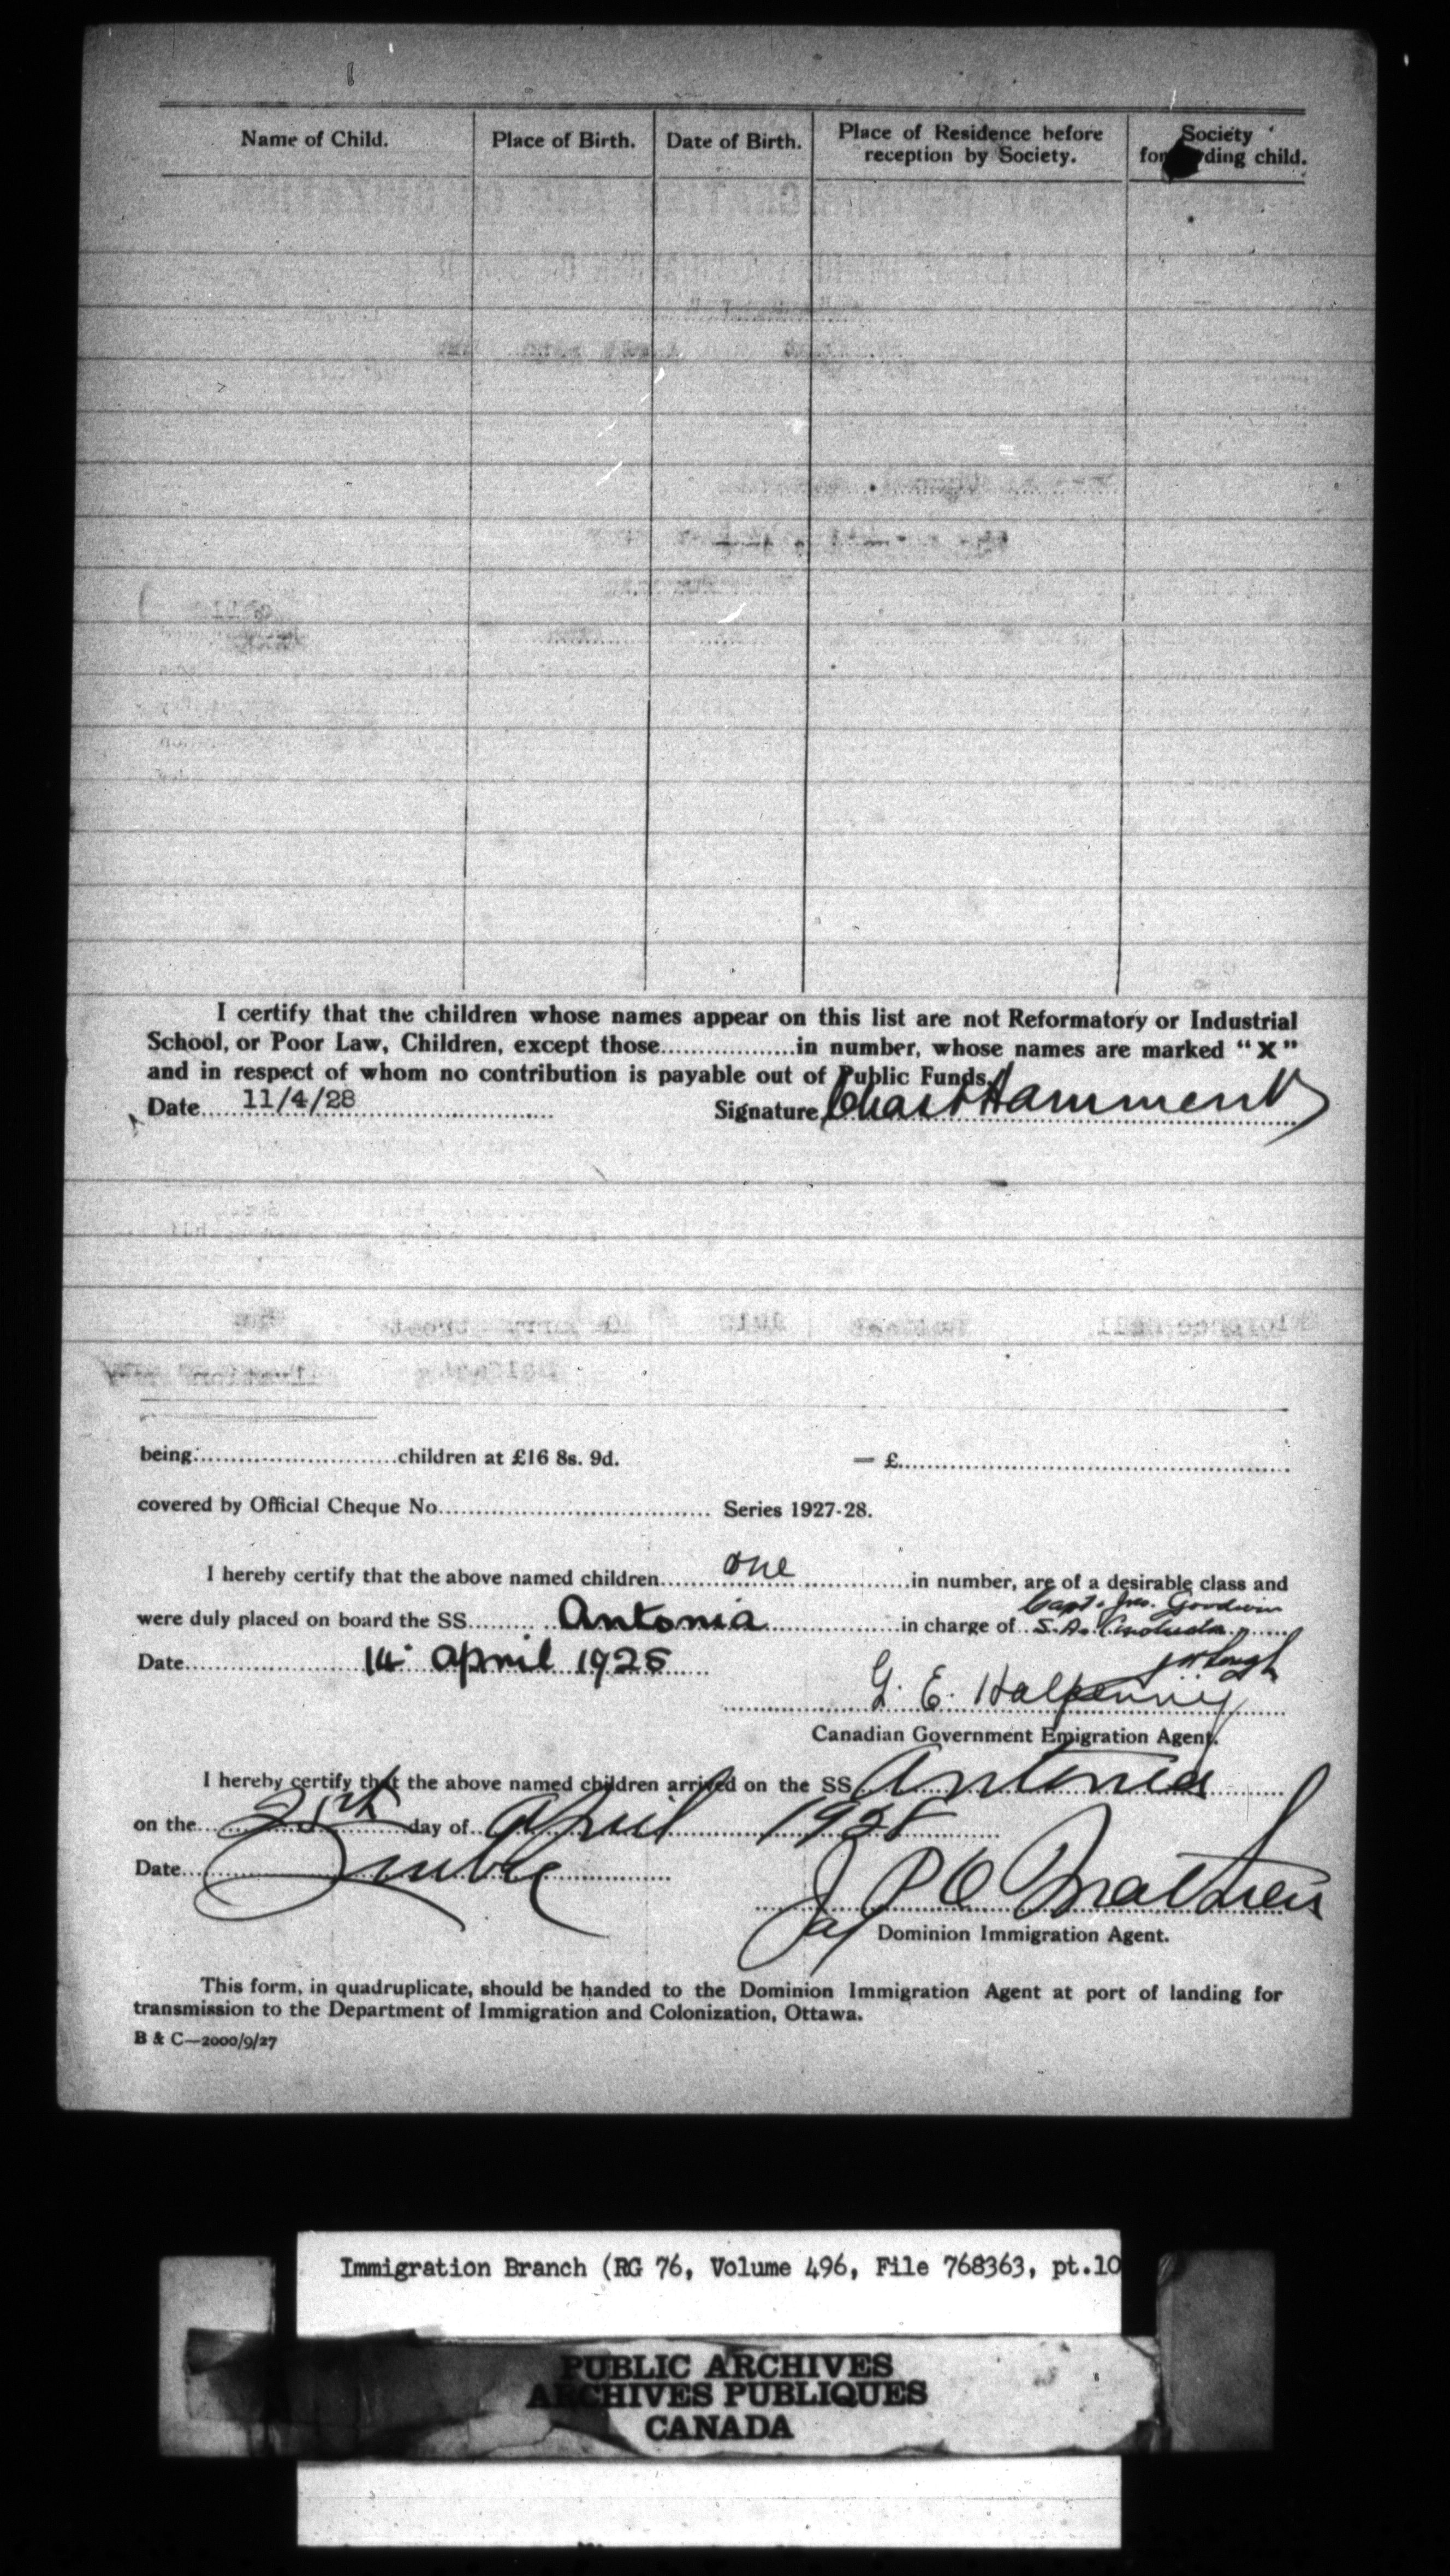 Name of Child. Place of Birth. Date of Birth. Place of Residence before reception by Society. Society forwarding child.
I certify that the children whose names appear on this list are not Reformatory or Industrial
School, or Poor Law, Children, except those..................in number, whose names are marked "X"
and in respect of whom no contribution is payable out of Public Funds.
Date 11/4/28 Signature
being............................children at £16 8s. 9d. — £
covered by Official Cheque No.................................... Series 1927-28.
I hereby certify that the above named children one in number, are of a desirable class and
Capt. Jno. Goodwin
were duly placed on board the SS. Antonia in charge of S.A.
Date 14 April 1928
G. E. Halpenny
Canadian Government Emigration Agent.
I hereby certify that the above named children arrived on the SS Antonia
on the day of April 1928
Date
J P O
Dominion Immigration Agent.
This form, in quadruplicate, should be handed to the Dominion Immigration Agent at port of landing for
transmission to the Department of Immigration and Colonization, Ottawa.
B & C—2000/9/27
Immigration Branch (RG 76, Volume 496, File 768363, pt.10
PUBLIC ARCHIVES
ARCHIVES PUBLIQUES
CANADA